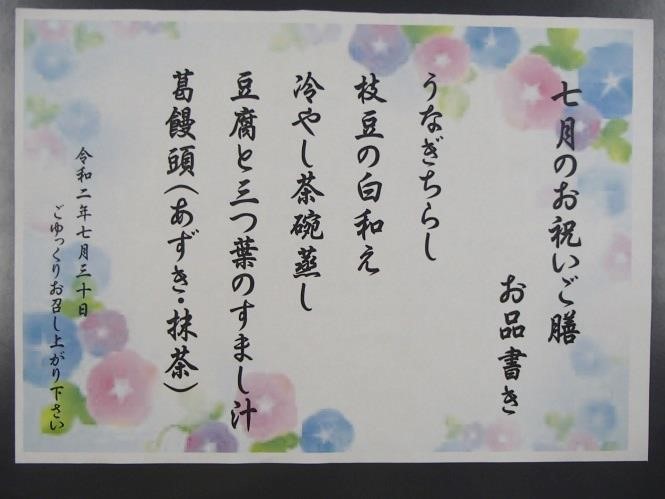 七月のお祝いご膳
お品書き
うなぎちらし
枝豆の白和え
冷やし茶碗蒸し
豆腐と三つ葉のすまし汁
葛饅頭(あずき・抹茶)
令和二年七月三十日
ごゆっくりお召し上がり下さい